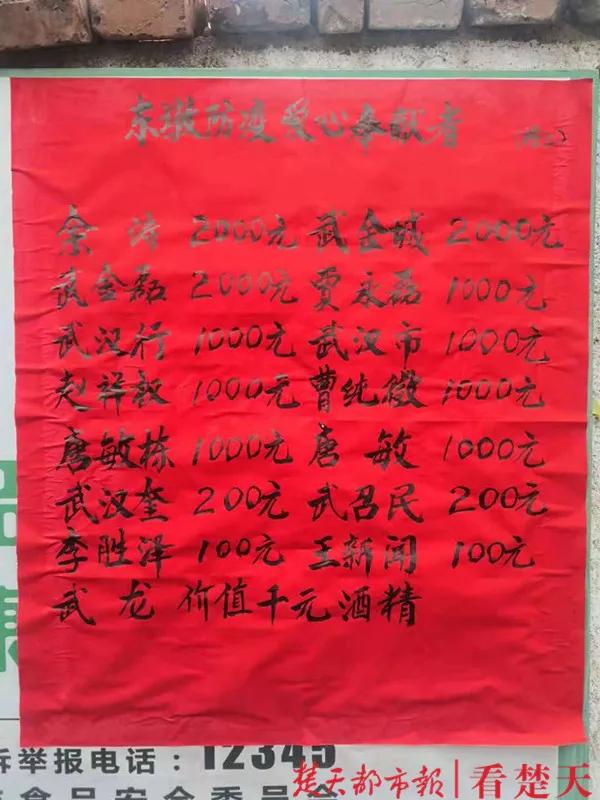 东墩防疫爱心奉献者
余涛 2000元 武金城 2000元
武金磊 2000元 贾永磊 1000元
武汉行 1000元 武汉市 1000元
赵祥权 1000元 曹纯 1000元
唐敏栋 1000元 唐敏 1000元
武汉奎 200元 武召民 200元
李胜泽 100元 王新闻 100元
武龙 价值千元酒精
诉举报电话：12345
食品安全委员会
楚天都市报 看楚天